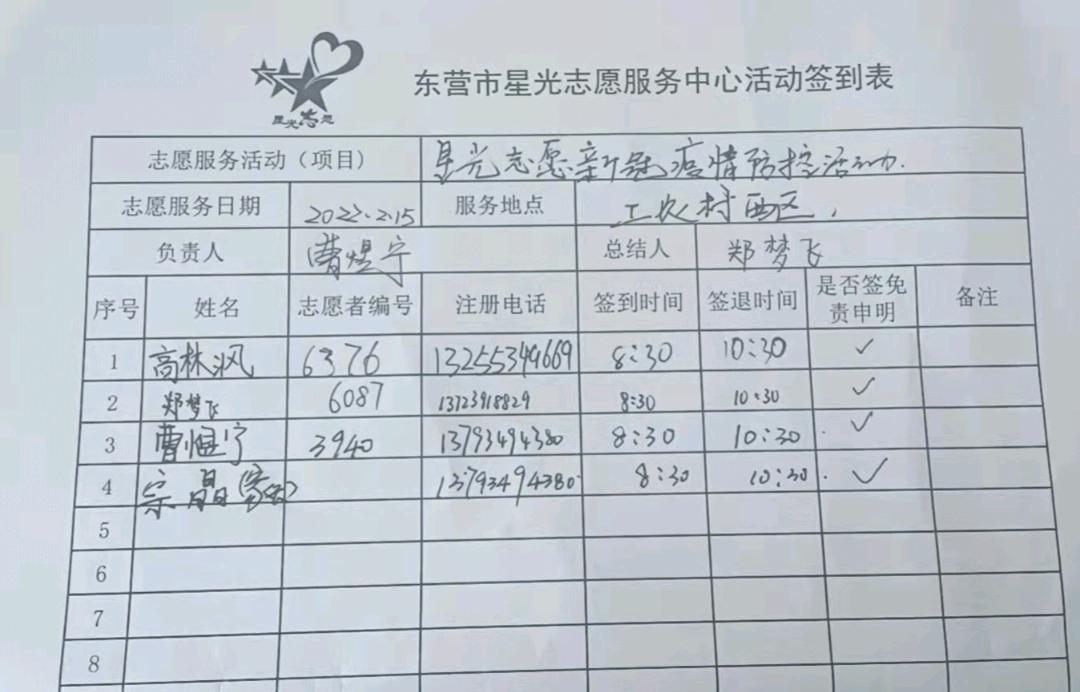 星光志愿
东营市星光志愿服务中心活动签到表
志愿服务活动（项目） 星光志愿新冠疫情防控活动.
志愿服务日期 2022.2.15 服务地点 工农村西区,
负责人 曹煜宁 总结人 郑梦飞
序号 姓名 志愿者编号 注册电话 签到时间 签退时间 是否签免责申明 备注
1 高林 6376 13255349669 8:30 10:30 ✓
2 郑梦飞 6087 13723918829 8:30 10:30 ✓
3 曹煜宁 3940 13793494380 8:30 10:30 ✓
4 宗晶 13793494380 8:30 10:30 ✓
5
6
7
8